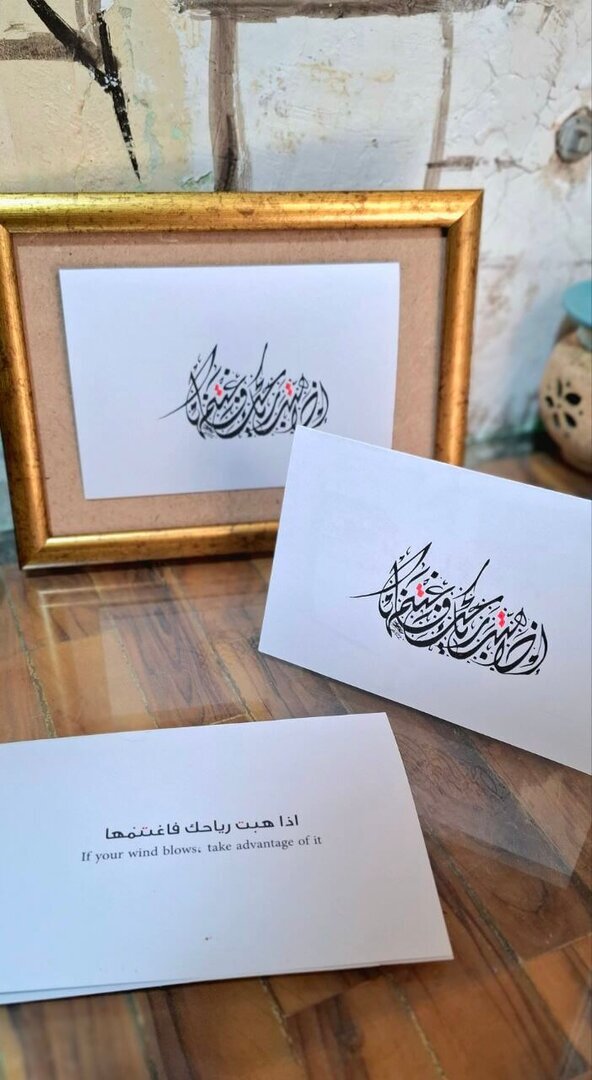 إذا هبت رياحك فاغتنمها
إذا هبت رياحك فاغتنمها
اذا هبت رياحك فاغتنمها
If your wind blows، take advantage of it